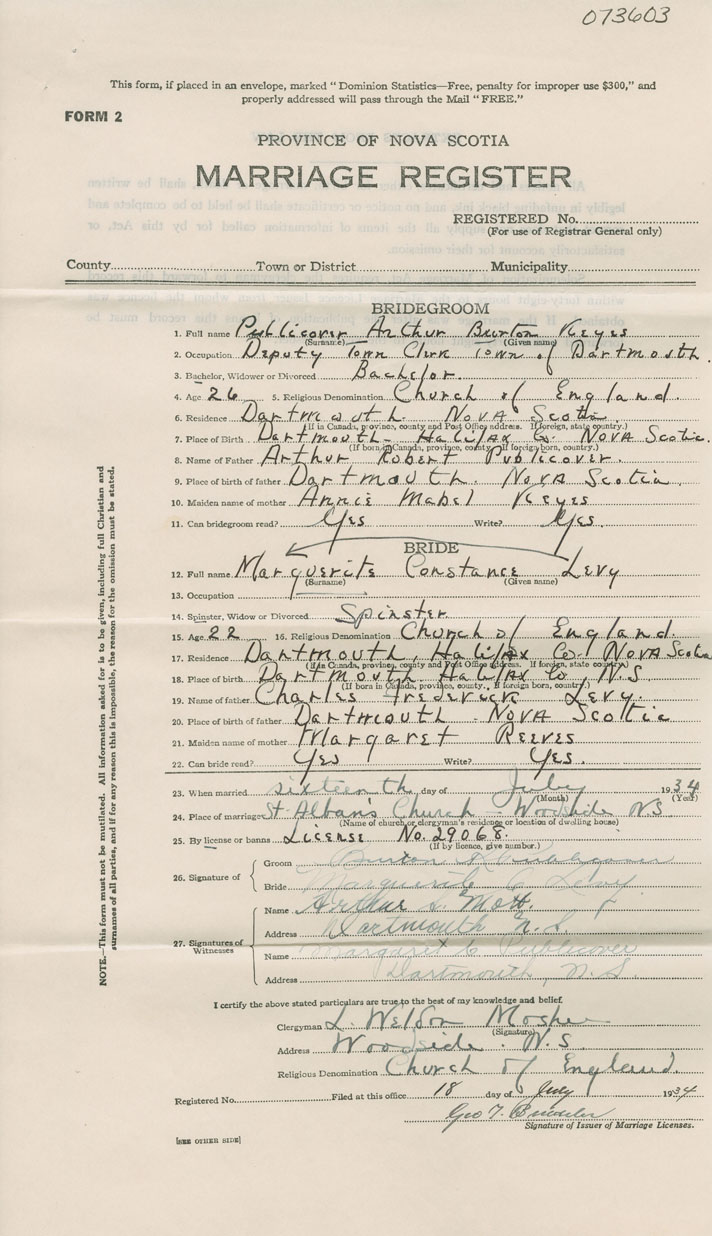 073603
This form, if placed in an envelope, marked "Dominion Statistics—Free, penalty for improper use $300," and
properly addressed will pass through the Mail "FREE."
FORM 2
PROVINCE OF NOVA SCOTIA
MARRIAGE REGISTER
REGISTERED No.
(For use of Registrar General only)
County Town or District Municipality
BRIDEGROOM
1. Full name Publicover Arthur Burton Keyes
(Surname) (Given name)
2. Occupation Deputy Town Clerk Town of Dartmouth.
3. Bachelor, Widower or Divorced Bachelor.
4. Age 26 5. Religious Denomination Church of England.
6. Residence Dartmouth. Nova Scotia
(If in Canada, province, county and Post Office address. If foreign, state country.)
7. Place of Birth Dartmouth - Halifax Co. Nova Scotia.
(If born in Canada, province, county. If foreign born, country.)
8. Name of Father Arthur Robert Publicover.
9. Place of birth of father Dartmouth. Nova Scotia
10. Maiden name of mother Annie Mabel Keyes
11. Can bridegroom read? Yes Write? Yes.
BRIDE
12. Full name Marguerite Constance Levy
(Surname) (Given name)
13. Occupation
14. Spinster, Widow or Divorced Spinster
15. Age 22 16. Religious Denomination Church of England.
17. Residence Dartmouth, Halifax Co. Nova Scotia
(If in Canada, province, county and Post Office address. If foreign state country)
18. Place of birth Dartmouth Halifax Co, N.S
(If born in Canada, province, county. If foreign born, country.)
19. Name of father Charles Frederick Levy.
20. Place of birth of father Dartmouth - Nova Scotia
21. Maiden name of mother Margaret Reeves
22. Can bride read? Yes Write? Yes.
23. When married sixteenth day of July 1934
(Month) (Year)
24. Place of marriage St Alban's Church - Woodside NS
(Name of church or clergyman's residence or location of dwelling house)
25. By license or banns License No. 29068.
(If by licence, give number.)
26. Signature of
Groom Burton K Publicover
Bride Marguerite C Levy
27. Signatures of Witnesses
Name Arthur S. Mott.
Address Dartmouth N.S.
Name Margaret C Publicover
Address Dartmouth, N.S.
I certify the above stated particulars are true to the best of my knowledge and belief.
Clergyman L. Weldon Mosher
(Signature)
Address Woodside. N.S.
Religious Denomination Church of England.
Registered No. Filed at this office 18 day of July 1934
Geo T.
Signature of Issuer of Marriage Licenses.
[SEE OTHER SIDE]
NOTE.—This form must not be mutilated. All information asked for is to be given, including full Christian and
surnames of all parties, and if for any reason this is impossible, the reason for the omission must be stated.